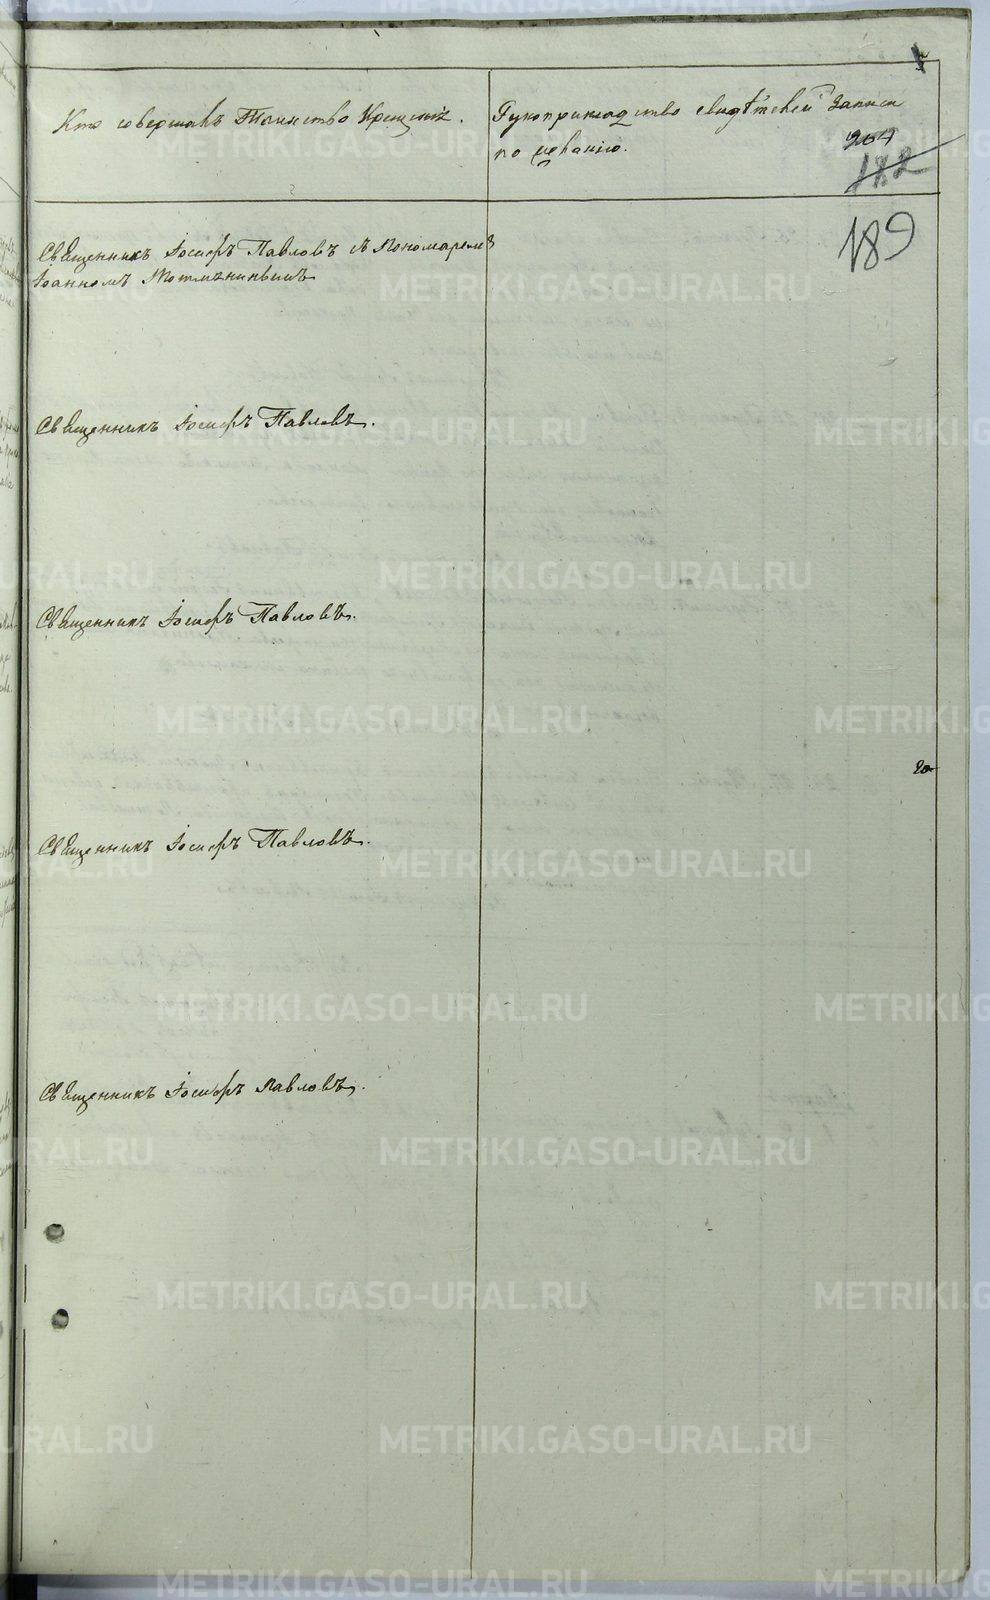 Кто совершалъ Таинство Крещенія.
Рукоприкладство свидѣтелей записи
по желанію.
204
182
189
Священникъ Іосифъ Павловъ съ Пономаремъ
Іоанномъ
Священникъ Іосифъ Павловъ.
Священникъ Іосифъ Павловъ.
Священникъ Іосифъ Павловъ.
Священникъ Іосифъ Павловъ.
METRIKI.GASO-URAL.RU